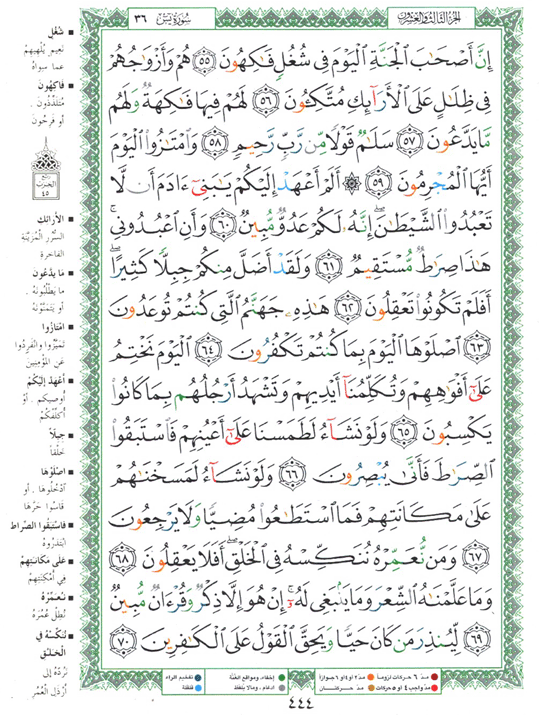 الجزء الثالث والعشرون
سورة يس ٣٦
إِنَّ أَصْحَابَ الْجَنَّةِ الْيَوْمَ فِي شُغُلٍ فَاكِهُونَ ٥٥ هُمْ وَأَزْوَاجُهُمْ
فِي ظِلَالٍ عَلَى الْأَرَائِكِ مُتَّكِئُونَ ٥٦ لَهُمْ فِيهَا فَاكِهَةٌ وَلَهُم
مَّا يَدَّعُونَ ٥٧ سَلَامٌ قَوْلًا مِّن رَّبٍّ رَّحِيمٍ ٥٨ وَامْتَازُوا الْيَوْمَ
أَيُّهَا الْمُجْرِمُونَ ٥٩ ۞ أَلَمْ أَعْهَدْ إِلَيْكُمْ يَا بَنِي آدَمَ أَن لَّا
تَعْبُدُوا الشَّيْطَانَ إِنَّهُ لَكُمْ عَدُوٌّ مُّبِينٌ ٦٠ وَأَنِ اعْبُدُونِي
هَذَا صِرَاطٌ مُّسْتَقِيمٌ ٦١ وَلَقَدْ أَضَلَّ مِنكُمْ جِبِلًّا كَثِيرًا
أَفَلَمْ تَكُونُوا تَعْقِلُونَ ٦٢ هَذِهِ جَهَنَّمُ الَّتِي كُنتُمْ تُوعَدُونَ
٦٣ اصْلَوْهَا الْيَوْمَ بِمَا كُنتُمْ تَكْفُرُونَ ٦٤ الْيَوْمَ نَخْتِمُ
عَلَى أَفْوَاهِهِمْ وَتُكَلِّمُنَا أَيْدِيهِمْ وَتَشْهَدُ أَرْجُلُهُم بِمَا كَانُوا
يَكْسِبُونَ ٦٥ وَلَوْ نَشَاءُ لَطَمَسْنَا عَلَى أَعْيُنِهِمْ فَاسْتَبَقُوا
الصِّرَاطَ فَأَنَّى يُبْصِرُونَ ٦٦ وَلَوْ نَشَاءُ لَمَسَخْنَاهُمْ
عَلَى مَكَانَتِهِمْ فَمَا اسْتَطَاعُوا مُضِيًّا وَلَا يَرْجِعُونَ
٦٧ وَمَن نُّعَمِّرْهُ نُنَكِّسْهُ فِي الْخَلْقِ أَفَلَا يَعْقِلُونَ ٦٨
وَمَا عَلَّمْنَاهُ الشِّعْرَ وَمَا يَنبَغِي لَهُ إِنْ هُوَ إِلَّا ذِكْرٌ وَقُرْآنٌ مُّبِينٌ
٦٩ لِّيُنذِرَ مَن كَانَ حَيًّا وَيَحِقَّ الْقَوْلُ عَلَى الْكَافِرِينَ ٧٠
شُغُلٍ
نعيم يُلهيهم
عما سواه
فاكهون
متلذذون
أو فرحون
ربع
الحزب
٤٥
الأرائك
السُّرر المُزيّنة
الفاخرة
ما يدّعون
ما يطلبونه
أو يتمنّونه
امتازوا
تميّزوا وانفردوا
عن المؤمنين
أعهد إليكم
أوصيكم. أو
أكلّفكم
جبلاً
خلقاً
اصلوها
ادخلوها، أو
قاسوا حرّها
فاستبقوا الصراط
ابتدروه
على مكانتهم
في أمكنتهم
نعمّره
نُطِل عمره
ننكّسه في
الخلق
نردّه إلى
أرذل العمر
مدّ ٦ حركات لزوماً
مدّ ٢ أو ٤ أو ٦ جوازاً
إخفاء، ومواقع الغنّة
تفخيم الراء
مدّ واجب ٤ أو ٥ حركات
مدّ حركتان
ادغام، وما لا يُلفظ
قلقلة
٤٤٤